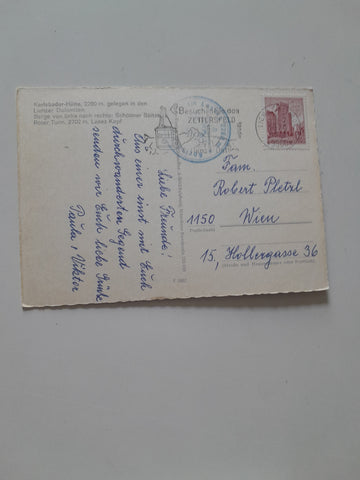 Karlsbader-Hütte, 2260 m, gelegen in den
Lienzer Dolomiten.
Berge von links nach rechts: Schöttner Spitze,
Roter Turm, 2702 m, Laserz Kopf
Liebe Freunde!
Aus einer einst mit Euch
durchwanderten Gegend
senden wir Euch liebe Grüße
Paula, Viktor
Besuchet den
ZETTERSFELD
Fam.
Robert Pletzl
1150 Wien
(Postleitzahl)
15, Hollergasse 36